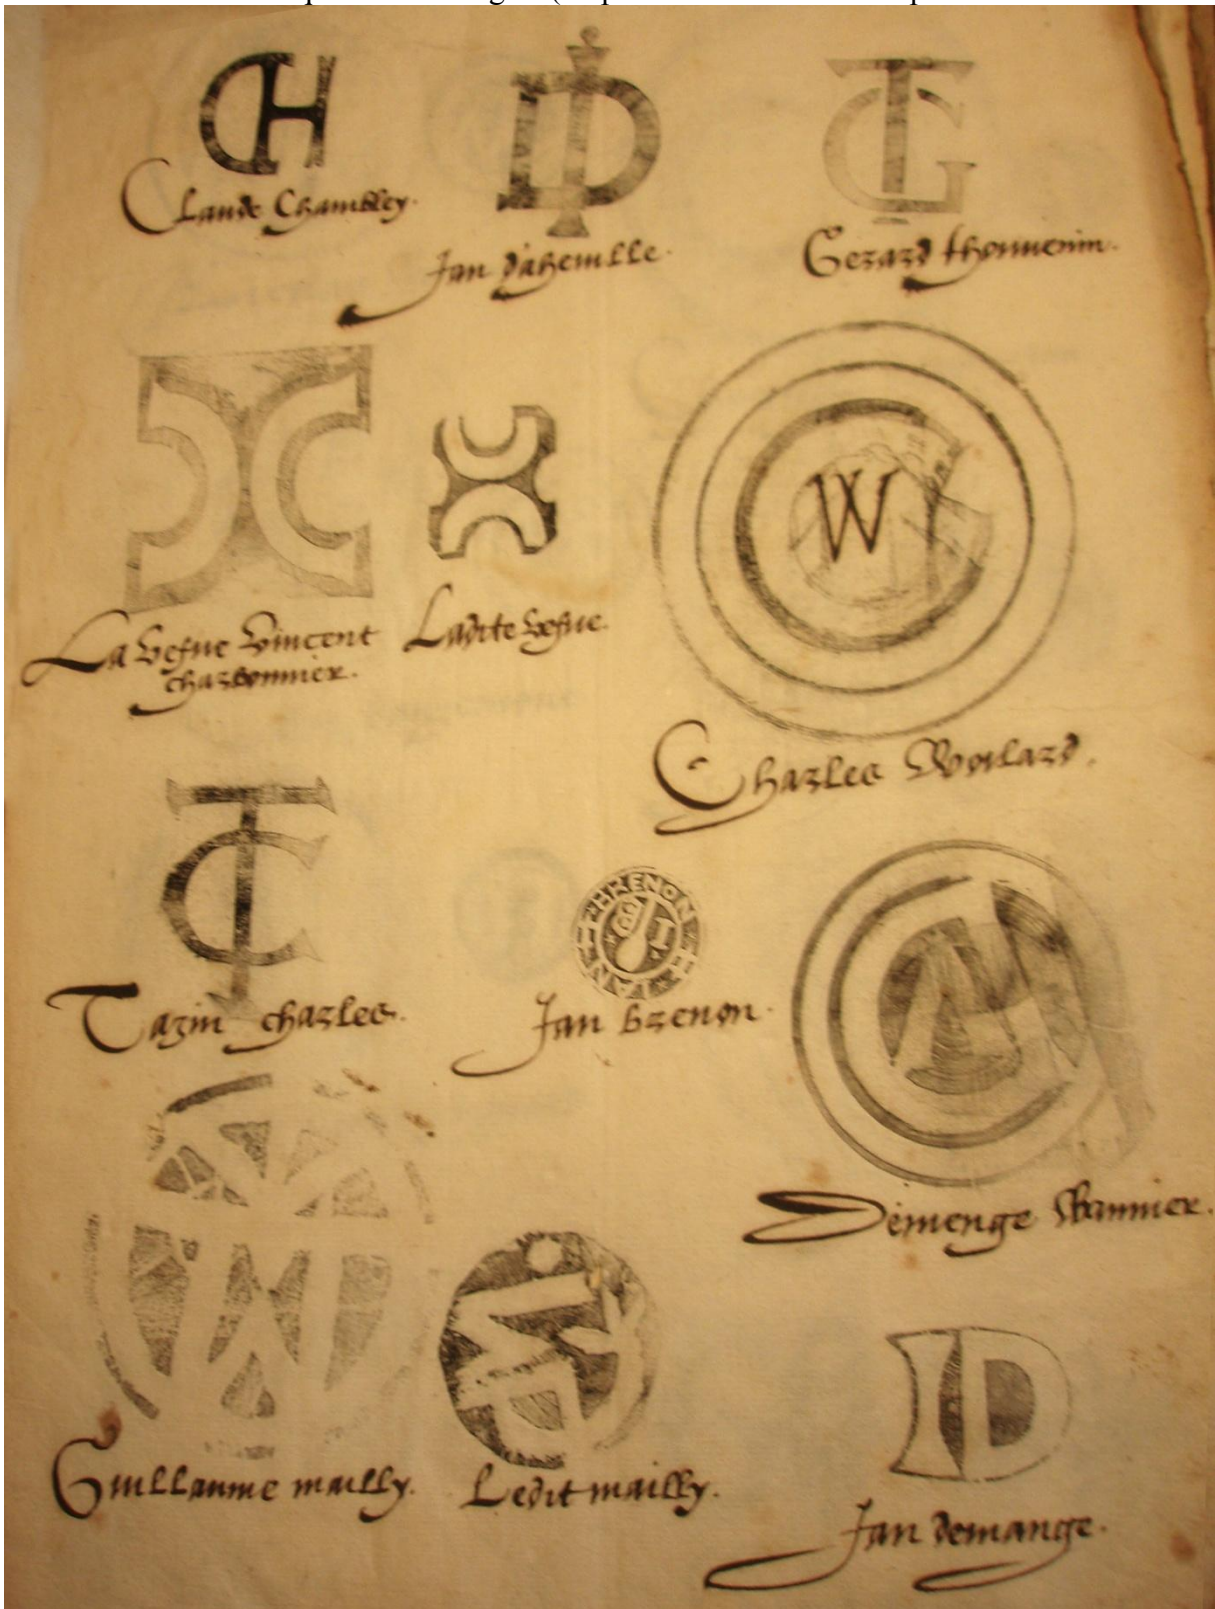 CH
Claude Chambley.
Jan dahemlle.
TG
Gerard thouuenin.
La vefue Vincent
charbonnier.
Ladite vefue.
W
Charles Woulard.
TC
Tarin charles.
IAN BRENON
Jan brenon.
Demenge Wannier.
Guillaume mailly.
Ledit mailly.
ID
Jan demange.